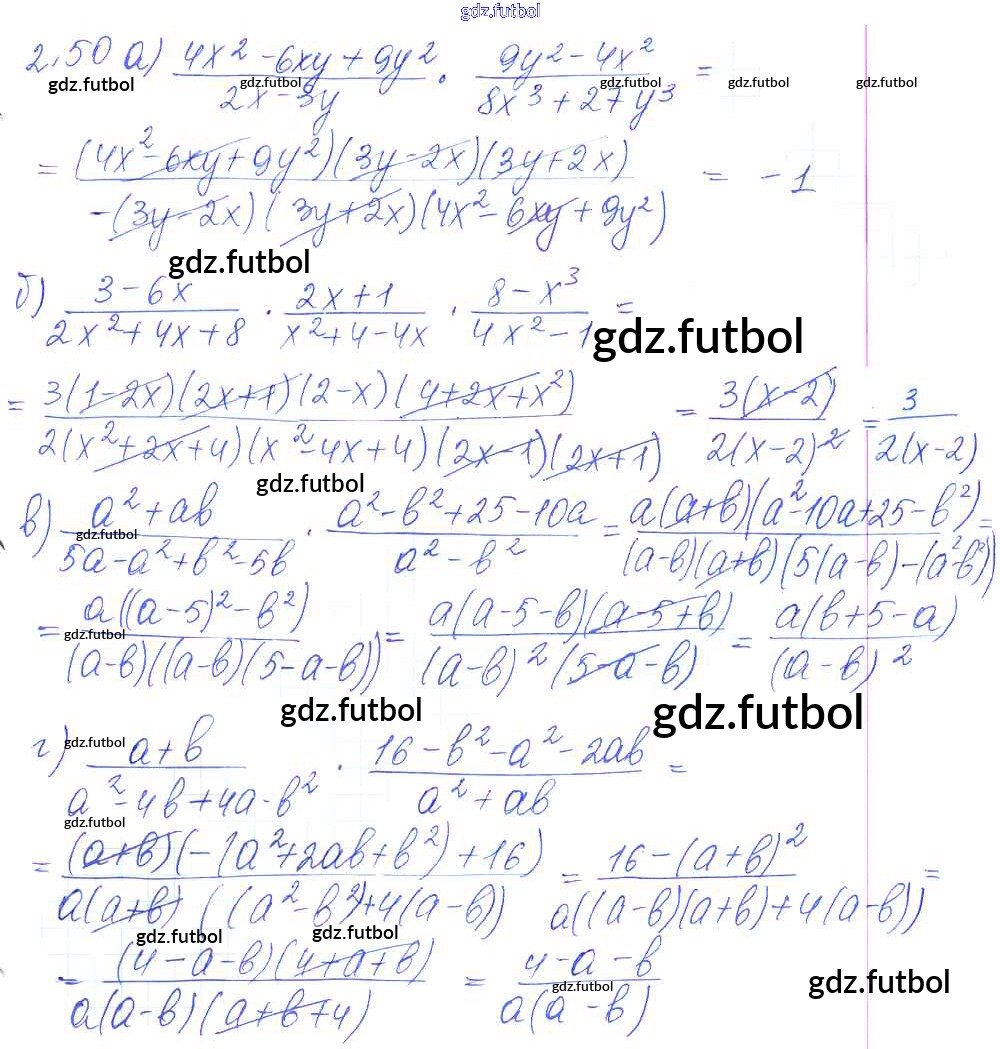 gdz.futbol
2.50 а) (4x² - 6xy + 9y²)/(2x - 3y) · (9y² - 4x²)/(8x³ + 27y³) =
gdz.futbol gdz.futbol gdz.futbol gdz.futbol
= ((4x² - 6xy + 9y²)(3y - 2x)(3y + 2x))/(-(3y - 2x)(3y + 2x)(4x² - 6xy + 9y²)) = -1
gdz.futbol
б) (3 - 6x)/(2x² + 4x + 8) · (2x + 1)/(x² + 4 - 4x) · (8 - x³)/(4x² - 1) =
gdz.futbol
= (3(1 - 2x)(2x + 1)(2 - x)(4 + 2x + x²))/(2(x² + 2x + 4)(x² - 4x + 4)(2x - 1)(2x + 1)) = (3(x - 2))/(2(x - 2)²) = 3/(2(x - 2))
gdz.futbol
в) (a² + ab)/(5a - a² + b² - 5b) · (a² - b² + 25 - 10a)/(a² - b²) = (a(a + b)(a² - 10a + 25 - b²))/((a - b)(a + b)(5(a - b) - (a² - b²))) =
gdz.futbol
= (a((a - 5)² - b²))/((a - b)((a - b)(5 - a - b))) = (a(a - 5 - b)(a - 5 + b))/((a - b)²(5 - a - b)) = (a(b + 5 - a))/((a - b)²)
gdz.futbol
gdz.futbol gdz.futbol
г) (a + b)/(a² - 4b + 4a - b²) · (16 - b² - a² - 2ab)/(a² + ab) =
gdz.futbol
gdz.futbol
= ((a + b)(-(a² + 2ab + b²) + 16))/(a(a + b)((a² - b²) + 4(a - b))) = (16 - (a + b)²)/(a((a - b)(a + b) + 4(a - b))) =
gdz.futbol gdz.futbol
= ((4 - a - b)(4 + a + b))/(a(a - b)(a + b + 4)) = (4 - a - b)/(a(a - b))
gdz.futbol gdz.futbol